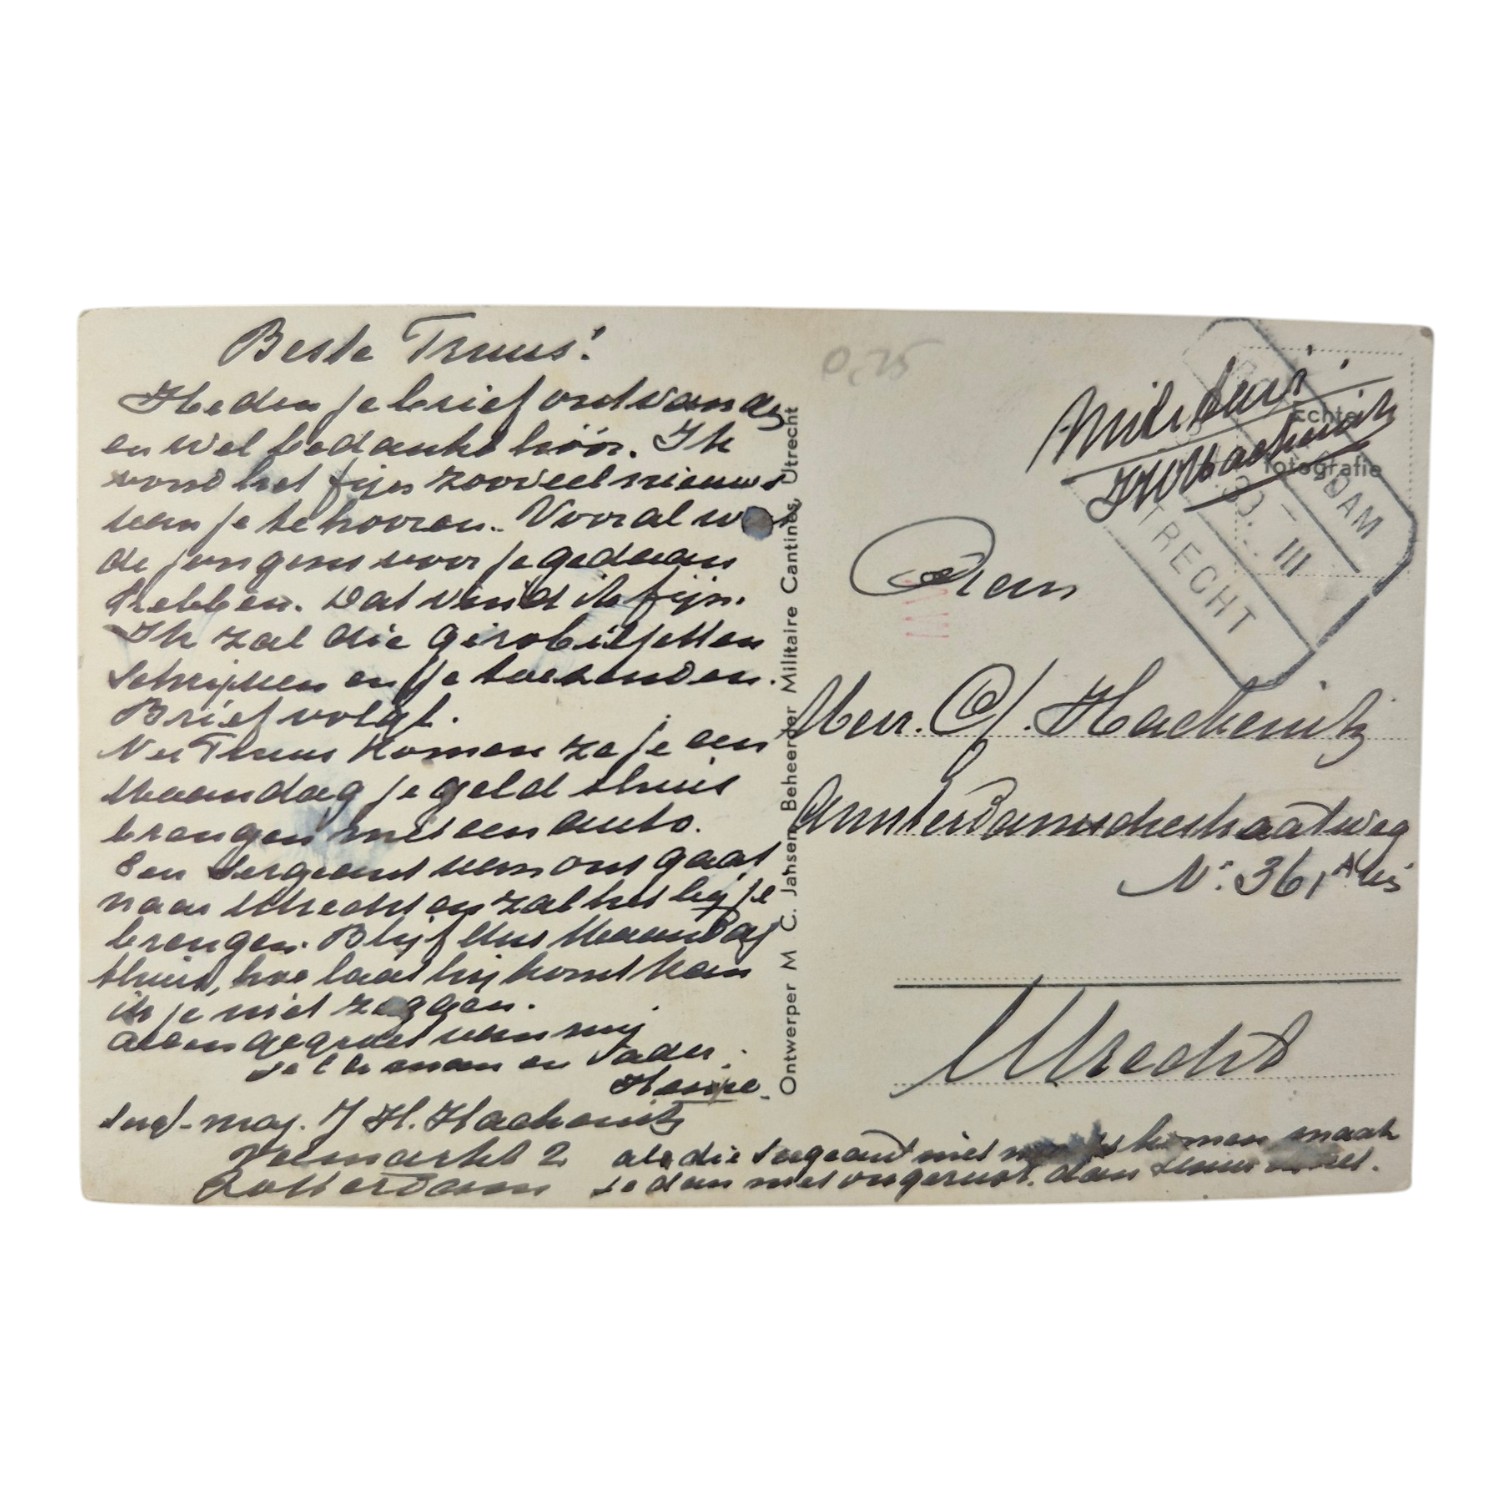 Beste Truus!
Heden je brief ontvangen
en wel bedankt hóór. Ik
vond het fijn zooveel nieuws
van je te hooren. Vooral wat
de jongens voor je gedaan
hebben. Dat vind ik fijn.
Ik zal die girobiljetten
schrijven en je toezenden.
Brief volgt.
Nu Truus komen ze je een
Maandag je geld thuis
brengen met een auto.
Een Sergeant van ons gaat
naar Utrecht en zal het bij je
brengen. Blijf dus Maandag
thuis, hoe laat hij komt kan
ik je niet zeggen.
gegroet van mij
je l h man en Vader.
Sergt-maj. J H. Hackenitz
Veemarkt 2
Rotterdam
als die sergeant niet komen maak
je dan niet ongerust. dan
0,75
Ontwerper M C. Jahsem Beheerder Militaire Cantines, Utrecht
Militair!
JHHackenitz
Echte
fotografie
DAM
TRECHT
30. - III
Aan
Mevr. C/. Hackenitz
Amsterdamschestraatweg
N: 361 A bis
Utrecht